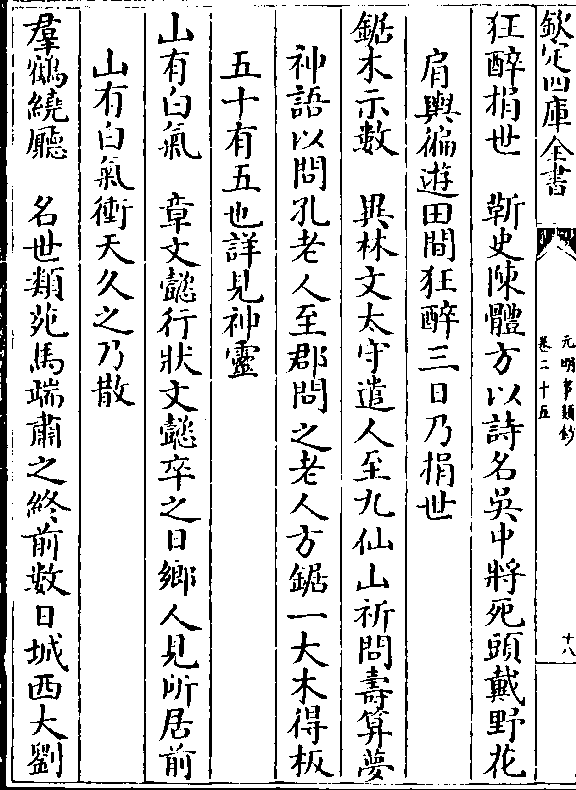 欽定四庫全書
元明事類鈔
卷二十五
十八
狂醉捐世　靳史陳體方以詩名吳中將死頭戴野花
肩輿徧遊田間狂醉三日乃捐世
鋸木示數　異林文太守遣人至九仙山祈問壽算夢
神語以問孔老人至郡問之老人方鋸一大木得板
五十有五也詳見神靈
山有白氣　章文懿行狀文懿卒之日鄉人見所居前
山有白氣衝天久之乃散
羣鶴繞廳　名世類苑馬端肅之終前数日城西大劉